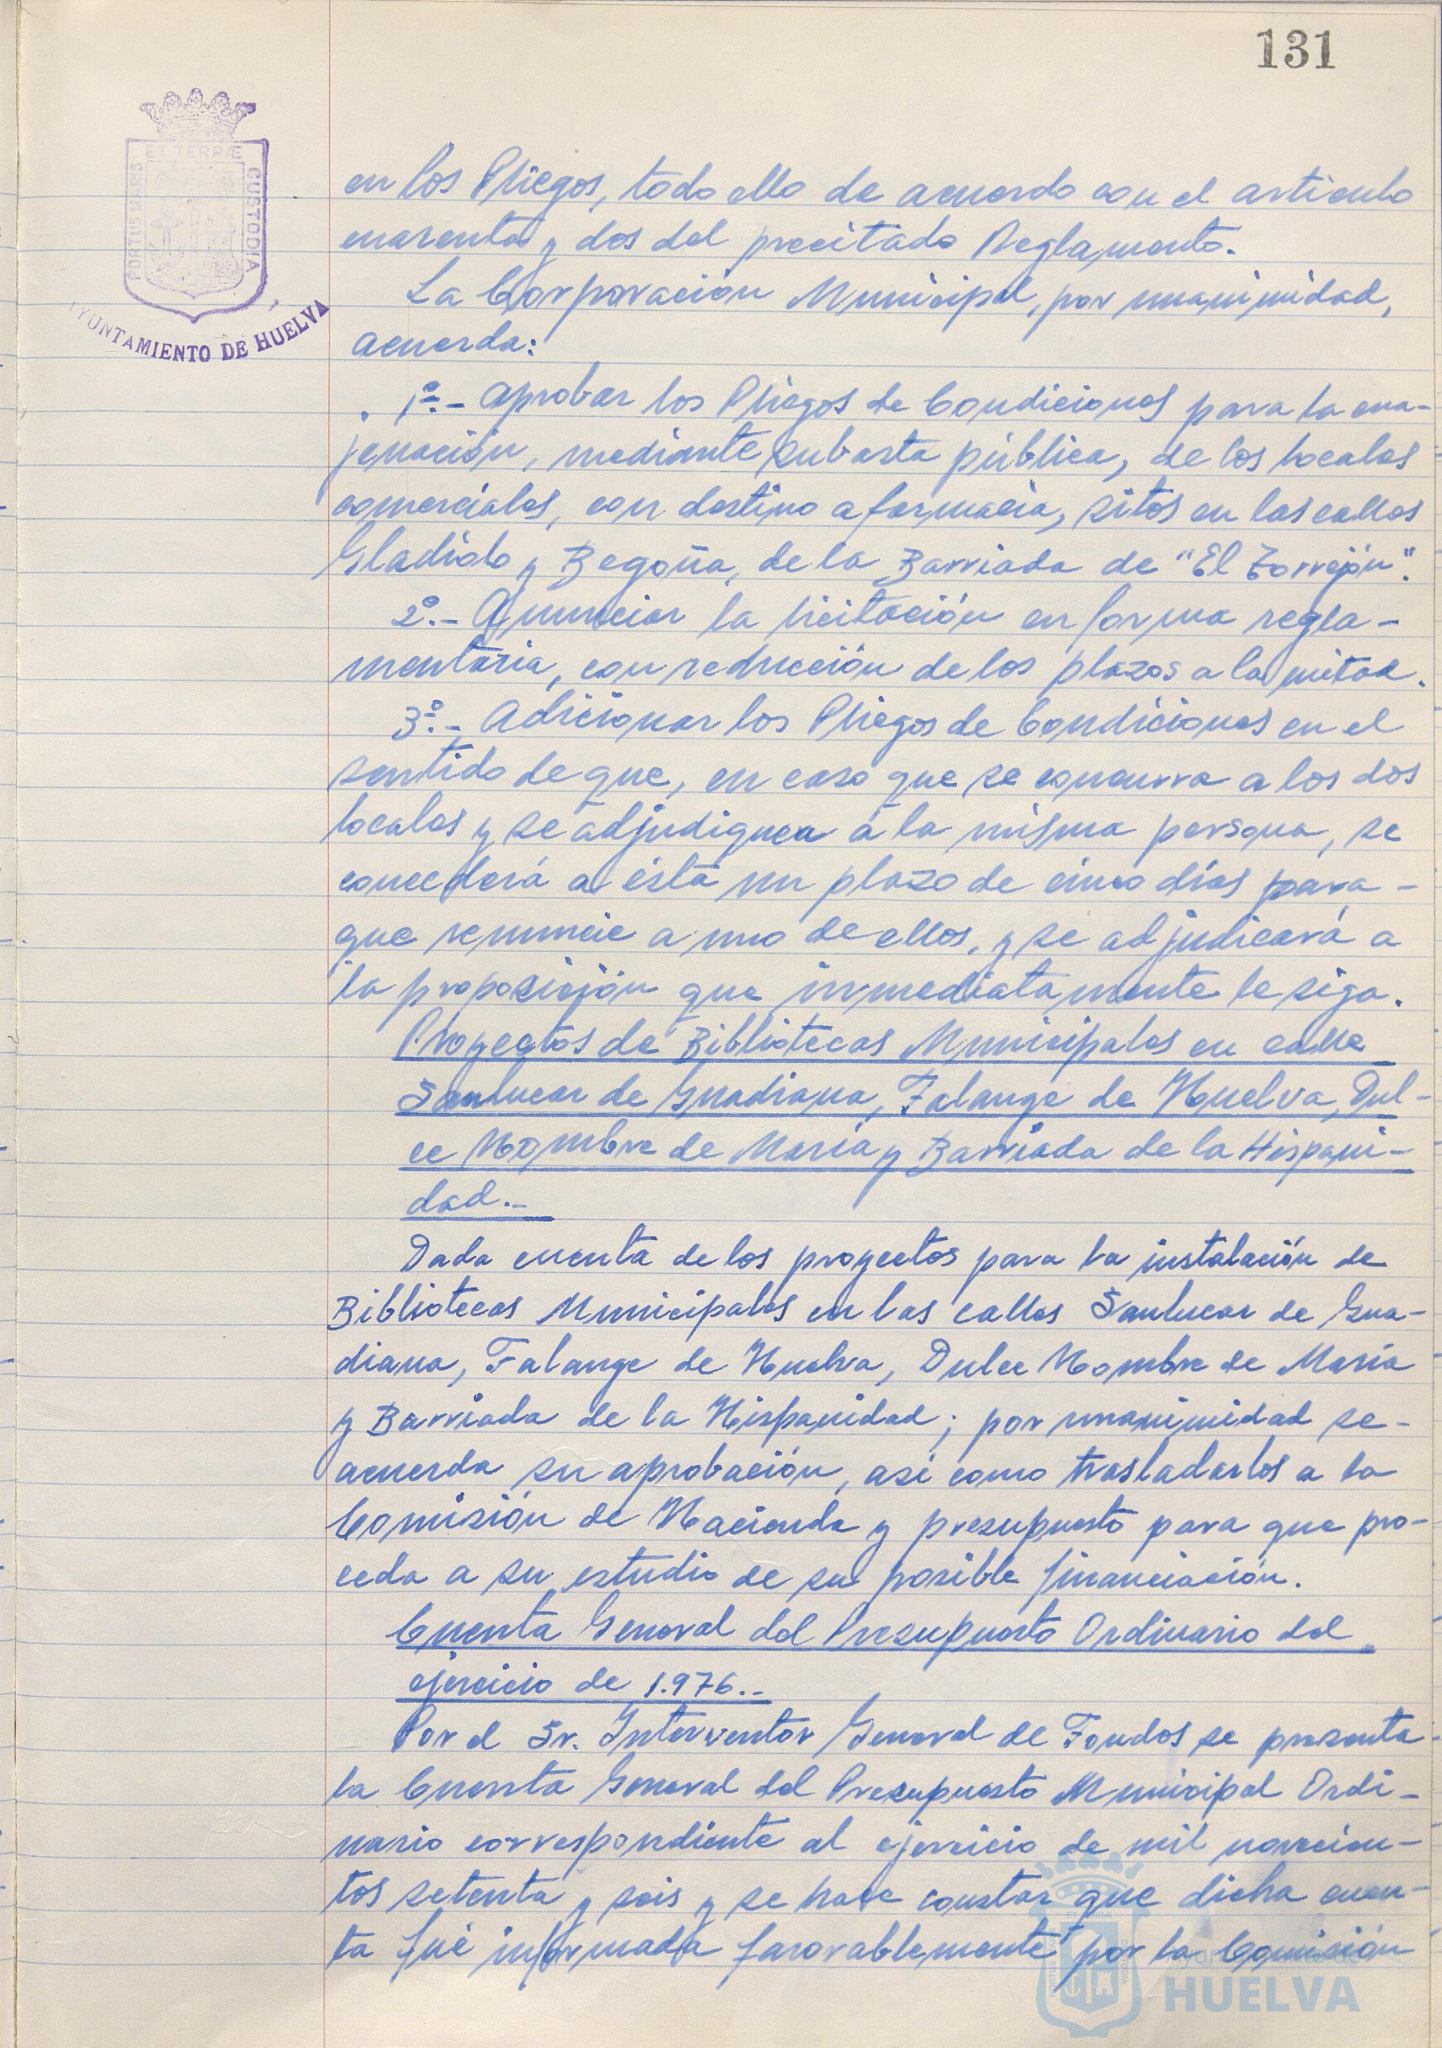 131
ET TERRÆ
PORTUS MARIS
CUSTODIA
AYUNTAMIENTO DE HUELVA
en los Pliegos, todo ello de acuerdo con el artículo
cuarenta y dos del precitado Reglamento.
La Corporación Municipal, por unanimidad,
acuerda:
1º.- Aprobar los Pliegos de Condiciones para la ena-
jenación, mediante subasta pública, de los locales
comerciales, con destino a farmacia, sitos en las calles
Gladiolo y Begoña, de la Barriada de "El Torrejón".
2º.- Anunciar la licitación en forma regla-
mentaria, con reducción de los plazos a la mitad.
3º.- Adicionar los Pliegos de Condiciones en el
sentido de que, en caso que se concurra a los dos
locales y se adjudiquen a la misma persona, se
concederá a ésta un plazo de cinco días para
que renuncie a uno de ellos, y se adjudicará a
la proposición que inmediatamente le siga.
Proyectos de Bibliotecas Municipales en calle
Sanlucar de Guadiana, Falange de Huelva, Dul-
ce Nombre de María y Barriada de la Hispani-
dad.-
Dada cuenta de los proyectos para la instalación de
Bibliotecas Municipales en las calles Sanlucar de Gua-
diana, Falange de Huelva, Dulce Nombre de María
y Barriada de la Hispanidad; por unanimidad se-
acuerda su aprobación, así como trasladarlos a la
Comisión de Hacienda y presupuesto para que pro-
ceda a su estudio de su posible financiación.
Cuenta General del Presupuesto Ordinario del
ejercicio de 1.976.-
Por el Sr. Interventor General de Fondos se presenta
la Cuenta General del Presupuesto Municipal Ordi-
nario correspondiente al ejercicio de mil novecien-
tos setenta y seis y se hace constar que dicha cuen-
ta fué informada favorablemente por la Comisión
Ayuntamiento de
HUELVA